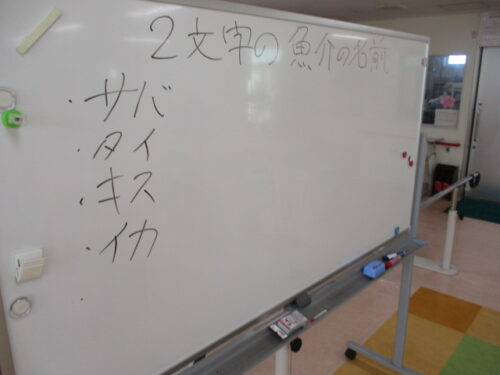 2文字の魚介の名前
・サバ
・タイ
・キス
・イカ
・